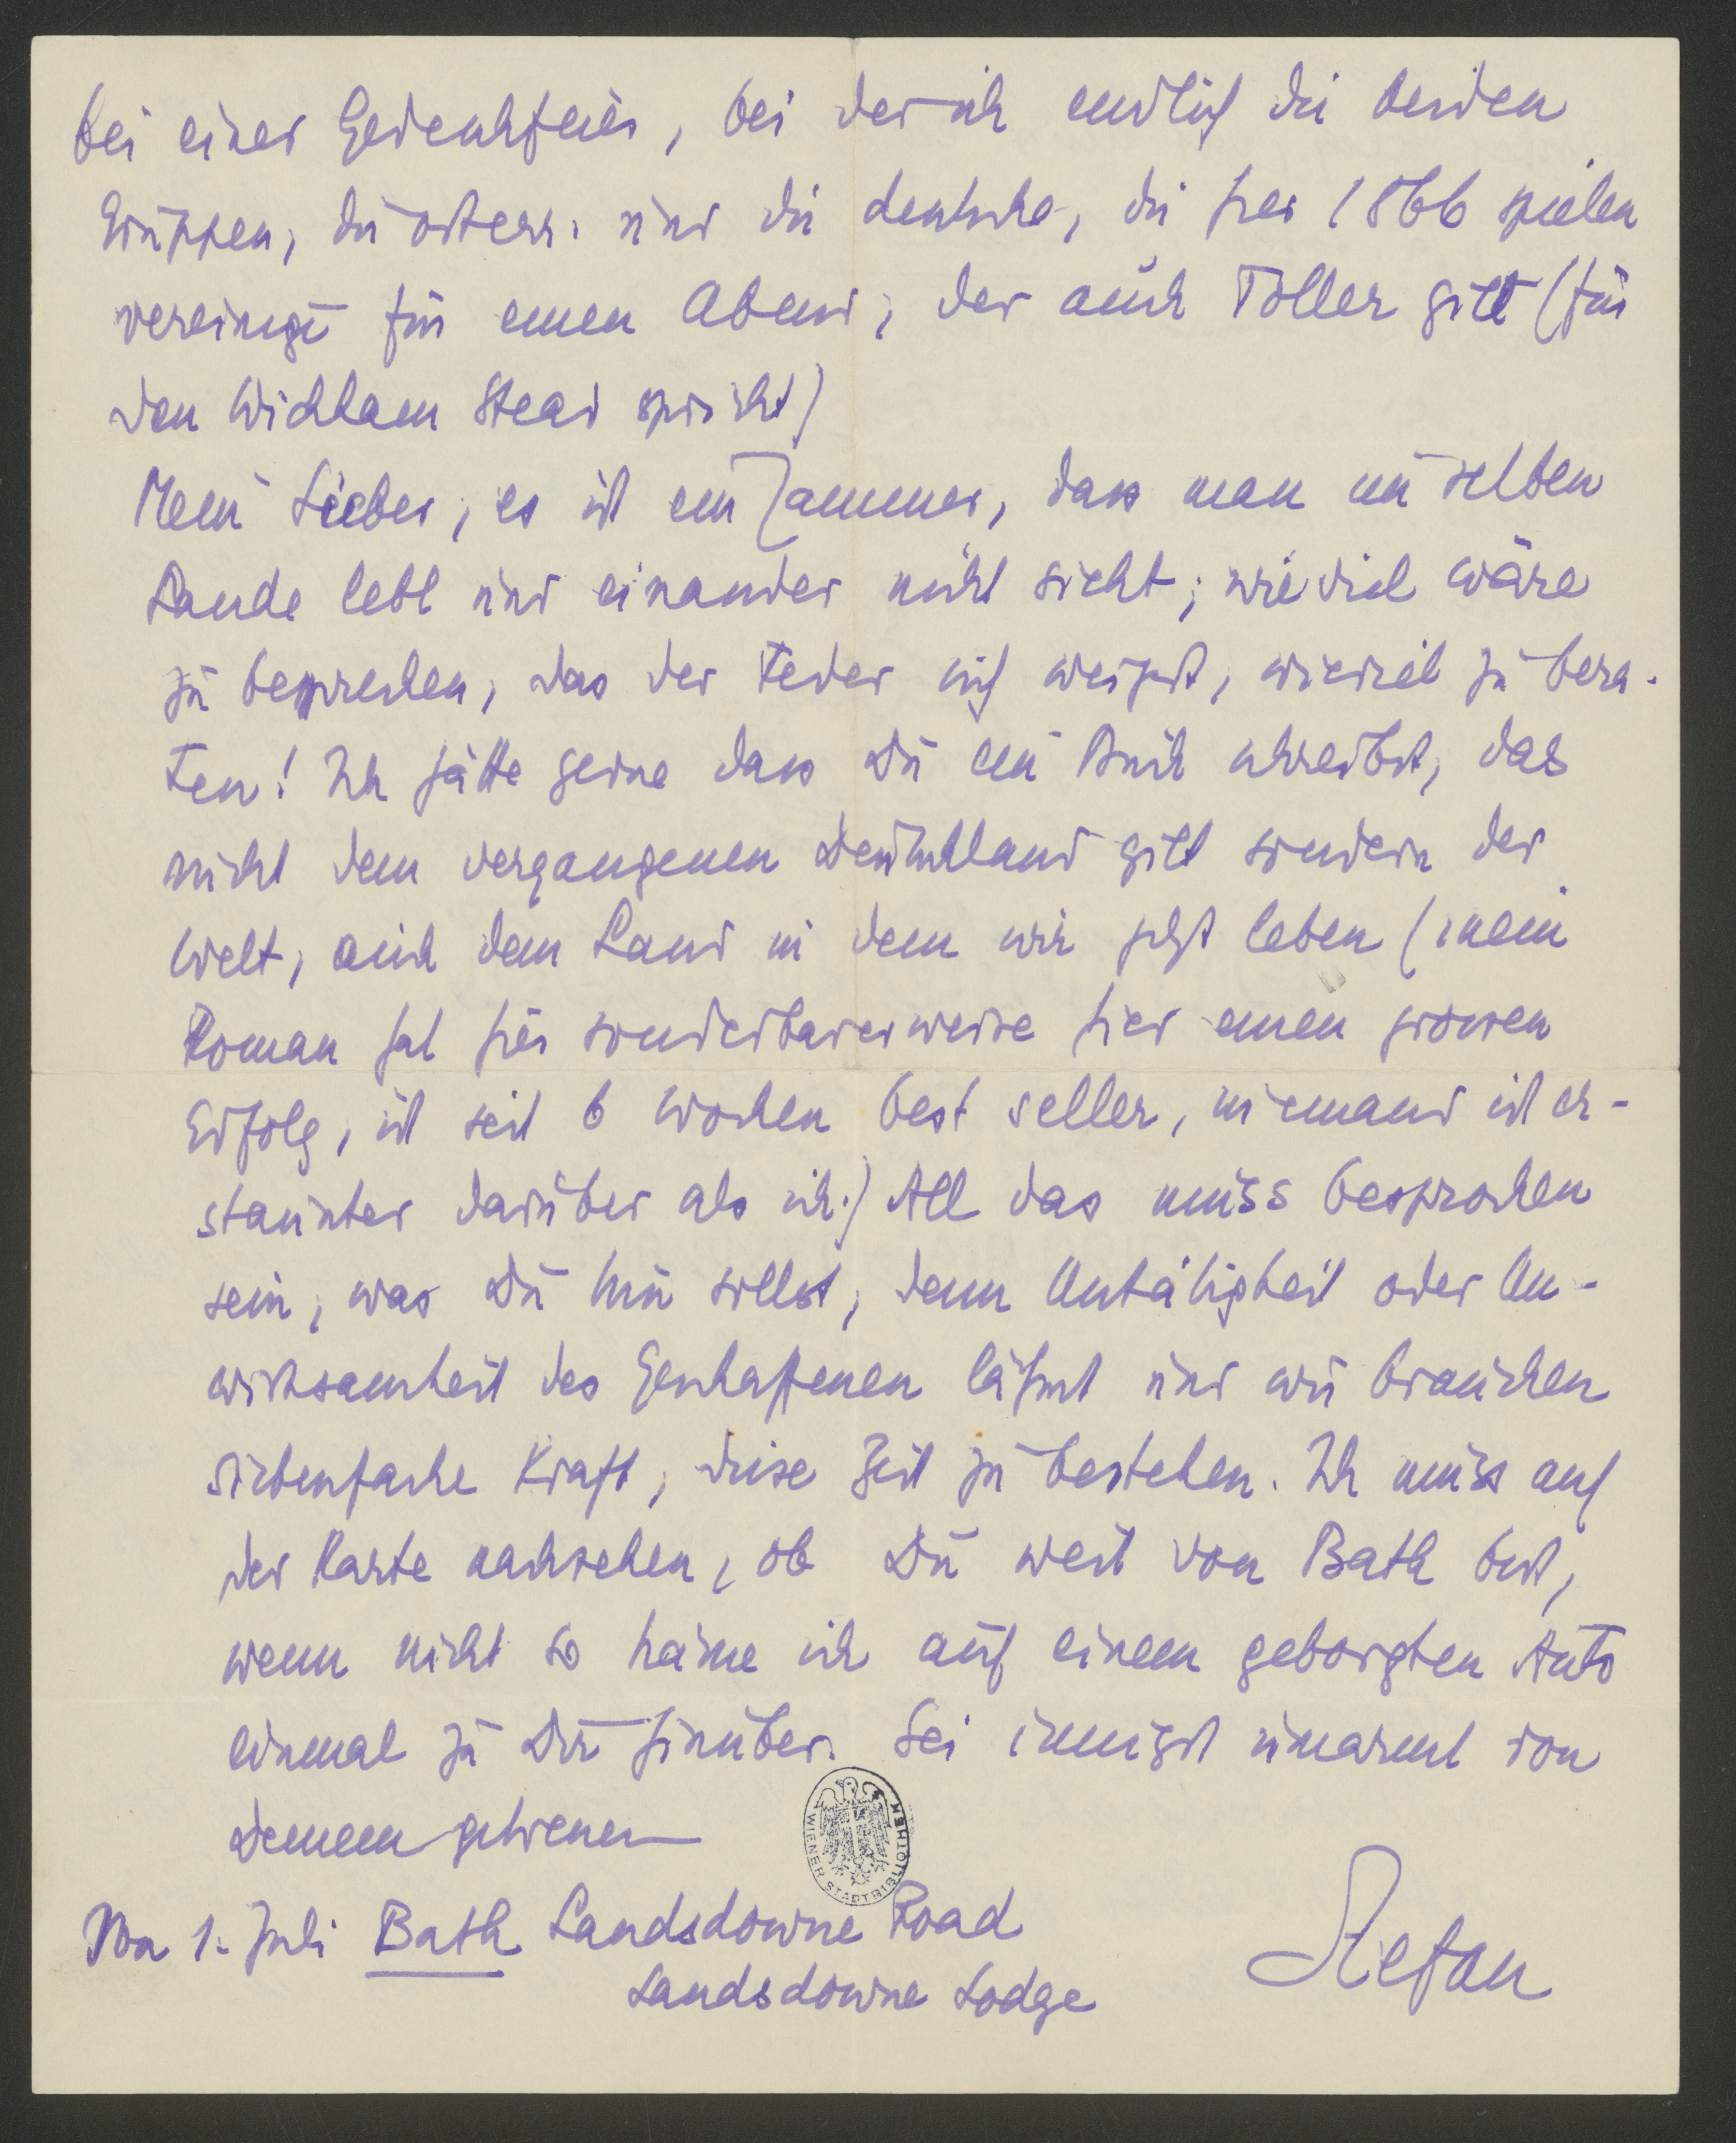 bei einer Gedenkfeier, bei der ich endlich die beiden
Gruppen, die österr. und die deutsche, die hier 1866 spielen
vereinige für einen Abend, der auch Toller gilt (für
den Wickham Stead spricht)
Mein Lieber, es ist ein Jammer, dass man im selben
Lande lebt und einander nicht sieht; wie viel wäre
zu besprechen, das der Feder sich weigert, wieviel zu bera-
ten! Ich hätte gerne dass Du ein Buch schreibst, das
nicht dem vergangenen Deutschland gilt sondern der
Welt, auch dem Land in dem wir jetzt leben (mein
Roman hat hier sonderbarerweise hier einen grossen
Erfolg, ist seit 6 Wochen best seller, niemand ist er-
staunter darüber als ich.) All das muss besprochen
sein, was Du tun sollst, denn Untätigkeit oder Un-
wirksamkeit des Geschaffenen lähmt und wir brauchen
siebenfache Kraft, diese Zeit zu bestehen. Ich muss auf
der Karte nachsehen, ob Du weit von Bath bist,
wenn nicht so käme ich auf einem geborgten Auto
einmal zu Dir hinüber. Sei innigst umarmt von
Deinem getreuen
WIENER STADTBIBLIOTHEK
Von 1. Juli Bath Landsdowne Road
Landsdowne Lodge
Stefan